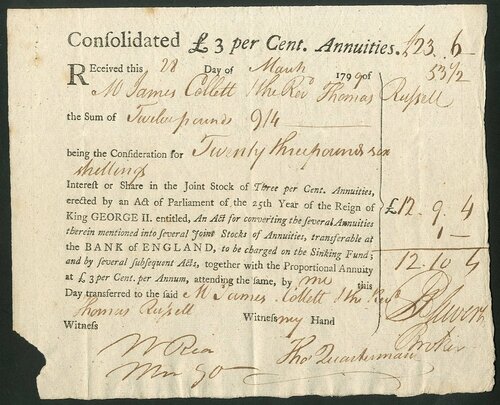 Consolidated £3 per Cent. Annuities. £23 .. 6 -
53 1/2
Received this 28 Day of March 1799 of
Mr James Collett & the Revd. Thomas Russell
the Sum of Twelve pounds 9/4
being the Consideration for Twenty three pounds six
shillings
Interest or Share in the Joint Stock of Three per Cent. Annuities,
erected by an Act of Parliament of the 25th Year of the Reign of
King GEORGE II. entitled, An Act for converting the several Annuities
therein mentioned into several Joint Stocks of Annuities, transferable at
the BANK of ENGLAND, to be charged on the Sinking Fund;
and by several subsequent Acts, together with the Proportional Annuity
at £3 per Cent. per Annum, attending the same, by me this
Day transferred to the said Mr James Collett & the Revd.
Thomas Russell
£12 . 9 . 4
1 -
12 . 10 . 4
Witness Witness my Hand
Broker
W Rea
Thos Quarterman